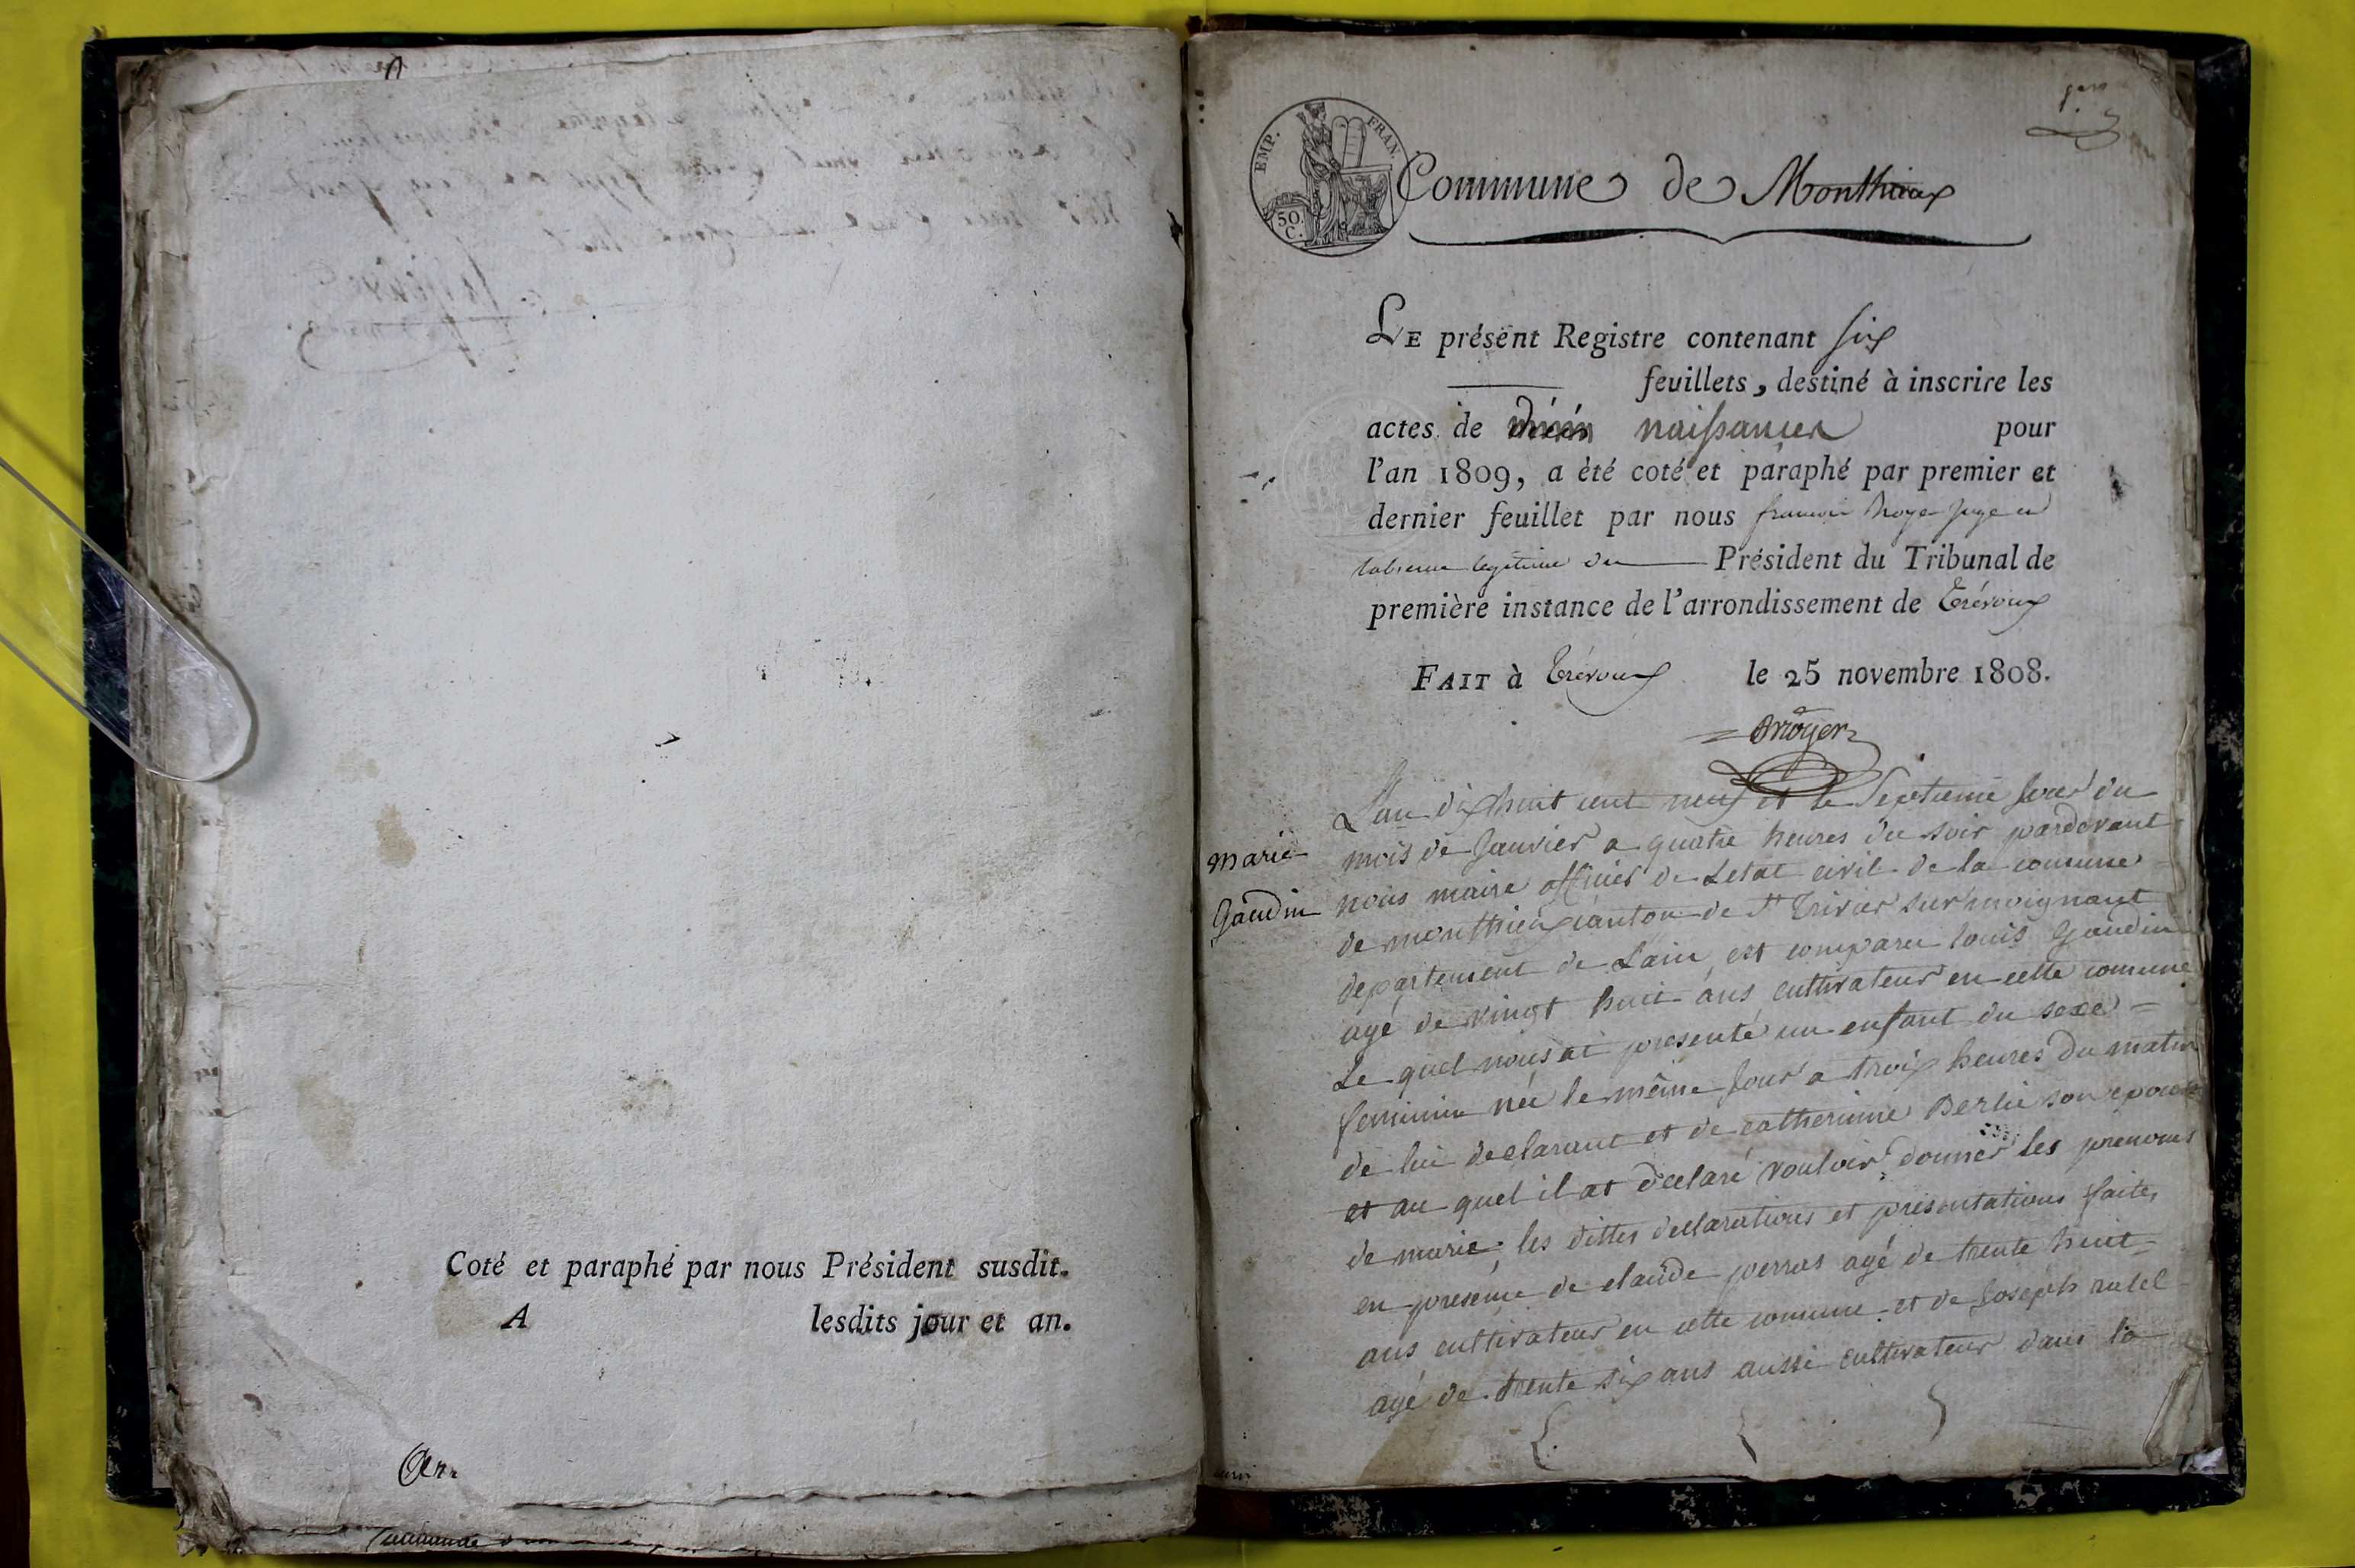 Coté et paraphé par nous Président susdit.
A lesdits jour et an.
EMP. FRAN.
50 C.
Commune de Monthieux
LE présent Registre contenant six
feuillets, destiné à inscrire les
actes de naissances pour
l'an 1809, a été coté et paraphé par premier et
dernier feuillet par nous francois troyer juge et
legitime du Président du Tribunal de
première instance de l'arrondissement de Trévoux
FAIT à Trévoux le 25 novembre 1808.
Marie
Gaudin
L'an dixhuit cent neuf et le Septieme jour du
mois de Janvier a quatre heures du soir pardevant
nous maire officier de Letat civil de la comune
de monthieux canton de St Trivier sur moignant
departement de Lain, est comparu louis Gaudin
agé de vingt huit ans cultivateur en cette comune
Le quel nous at presenté un enfant du sexe =
feminin née le même jour a troix heures du matin
de lui declarant et de catherinne Berlie son epouse
et au quel il at déclaré vouloir donner les prenoms
de marie; les dittes declarations et présentations faites
en presence de claude perras agé de trente huit
ans cultivateur en cette comune et de Joseph
agé de trente six ans aussi cultivateur dans la